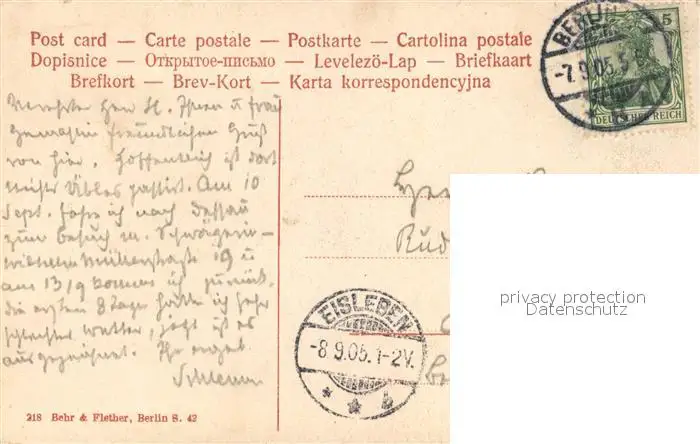 Post card — Carte postale — Postkarte — Cartolina postale
Dopisnice — Открытое-письмо — Levelező-Lap — Briefkaart
Brefkort — Brev-Kort — Karta korrespondencyjna
BERLIN
-7.9.05.5
5
DEUTSCHES REICH
Herr H. u Frau
Gemahlin freundlichen Gruß
von hier. Hoffentlich ist dort
nichts Übles passirt. Am 10
Sept. fahre ich nach Dessau
zum Besuch m. Schwägerin
Wilhelm Müllerstraße 19 u
am 13/9 komme ich zurück.
die ersten 8 Tage hatte ich sehr
schlechtes Wetter, jetzt ist es
ausgezeichnet. Ihr ergeb.
EISLEBEN
-8.9.05.1-2V.
* * b
privacy protection
Datenschutz
218 Behr & Flether, Berlin S. 42